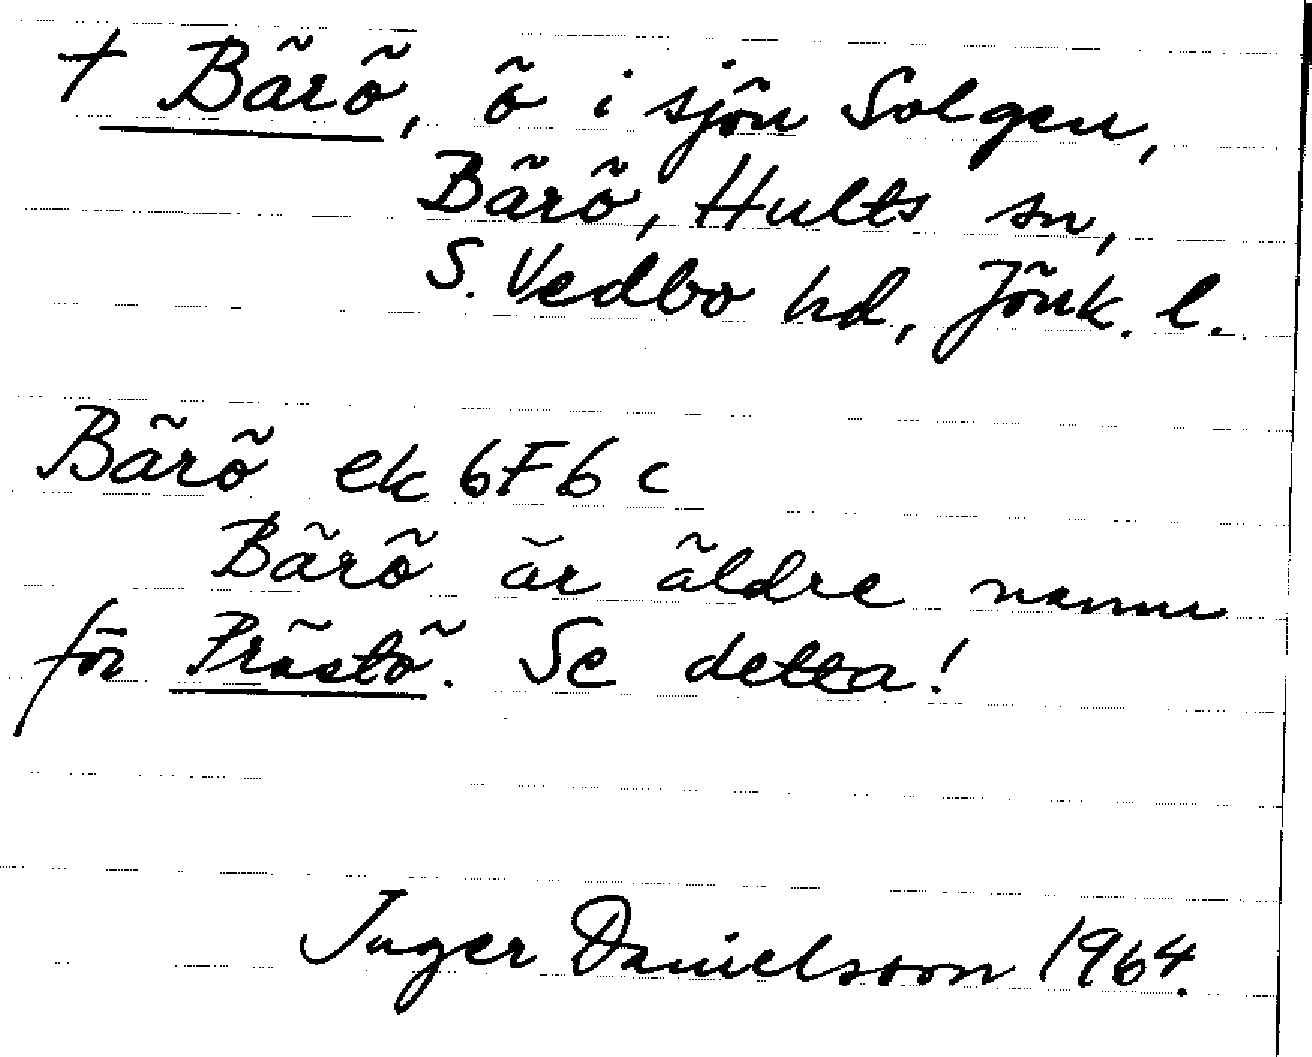 † Bärö, ö i sjön Solgen,
Bärö, Hults sn,
S. Vedbo hd, Jönk. l.
Bärö ek 6F6c
Bärö är äldre namn
för Prästö. Se detta!
Inger Danielsson 1964.